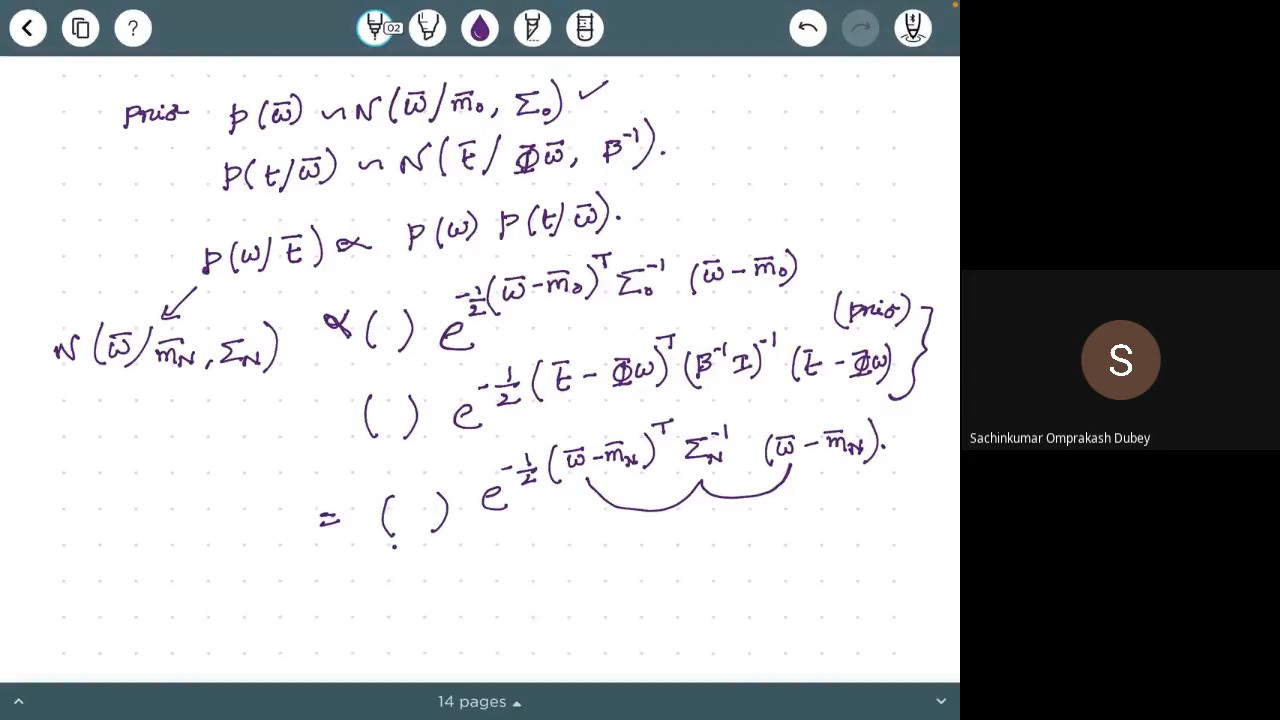 ? 02
prior p(ω̄) ~ N(ω̄/m̄₀, Σ₀) ✓
p(t/ω̄) ~ N(t̄/Φω̄, β⁻¹).
p(ω/t̄) ∝ p(ω) p(t/ω̄).
N(ω̄/m̄_N, Σ_N) ∝ ( ) e^{-½(ω̄-m̄₀)ᵀ Σ₀⁻¹ (ω̄-m̄₀)}
(prior)
( ) e^{-½(t̄-Φω)ᵀ (β⁻¹I)⁻¹ (t̄-Φω)}
= ( ) e^{-½(ω̄-m̄_N)ᵀ Σ_N⁻¹ (ω̄-m̄_N)}.
14 pages
S
Sachinkumar Omprakash Dubey